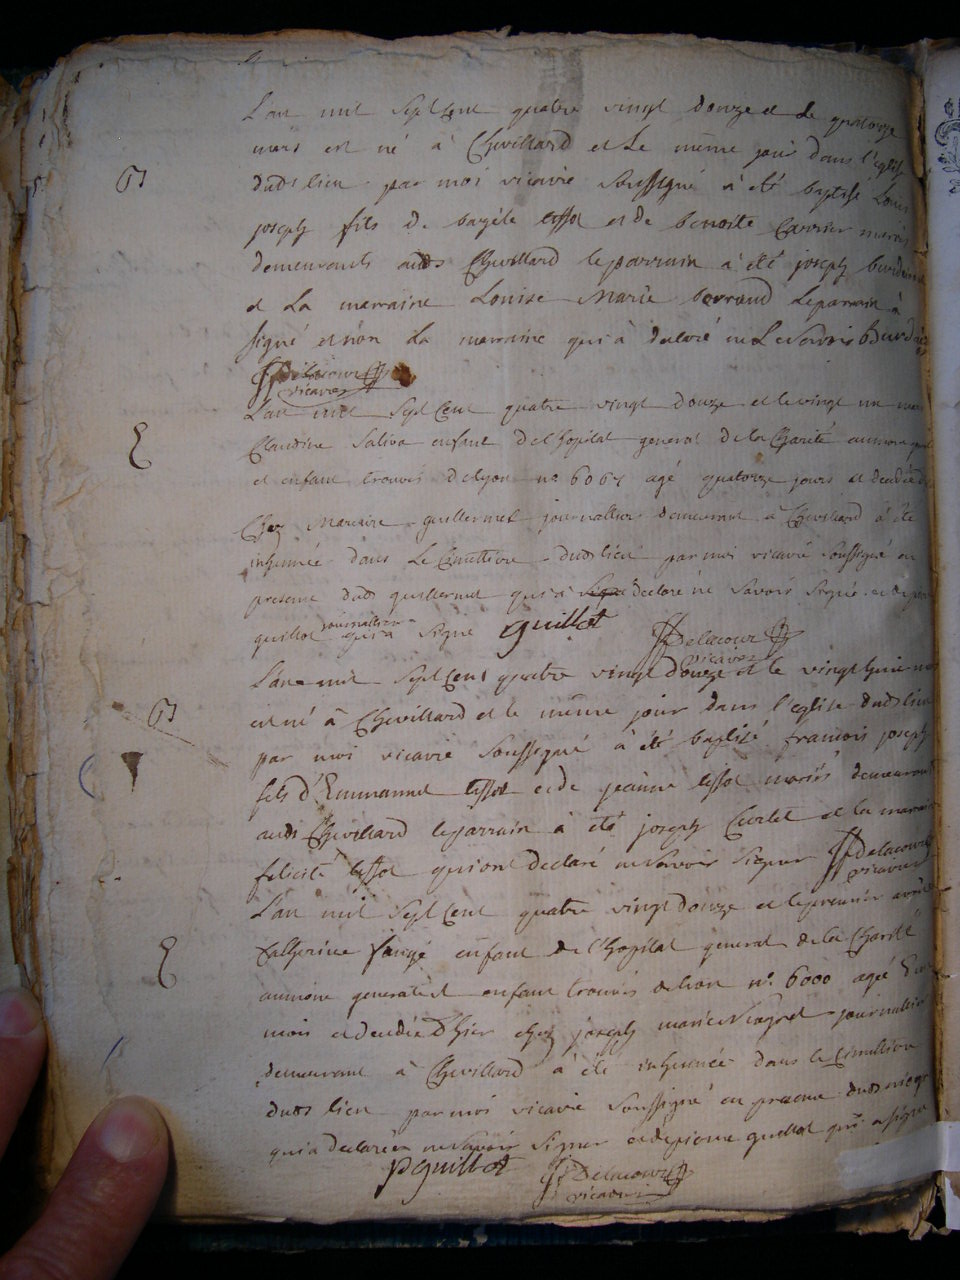 L'an mil sept cent quatre vingt douze et le quatorze
mars est né à Chevillard et le même jour dans l'eglise
B
dudt lieu par moi vicaire soussigné a été baptisé Louis
joseph fils de tissot et de benoite Carrier mariés
demeurants audt Chevillard le parrain à été joseph
et La marraine Louise Marie le parrain à
signé et non La marraine qui à declaré ne Le savoir
Delacour
vicaire
L'an mil sept cent quatre vingt douze et le vingt un mars
E
Claudine Saliva enfant de l'hopital general de la Charité aumone
et enfant trouvés de lyon no agé quatorze jours et decedée
Chez guillermet journallier demeurant à Chevillard à été
inhumée dans Le Cimettière dudt lieu par moi vicaire soussigné en
presence dudt guillermet qui à declaré ne savoir signé et de pierre
journallier
guillot qui a signé guillot Delacour
vicaire
L'an mil sept cent quatre vingt douze et le vingt huit mars
B
est né à Chevillard et le même jour dans l'eglise dudt lieu
par moi vicaire soussigné à été baptisé francois joseph
fils d'Emmanuel tissot et de jeanne tissot mariés demeurant
audt Chevillard le parrain à été joseph et la marraine
felicité tissot qui ont declaré ne savoir signer Delacour
vicaire
L'an mil sept cent quatre vingt douze et le premier avril
E
Catherine enfant de l'hopital general de la Charité
aumone generale et enfant trouvés de lion no. 6000 agée
mois et decedée d'hier chez joseph marie journallier
demeurant à Chevillard à été inhumée dans le Cimettière
dudt lieu par moi vicaire soussigné en presence dudt
qui a declaré ne savoir signer et de pierre guillot qui a signé
pguillot Delacour
vicaire